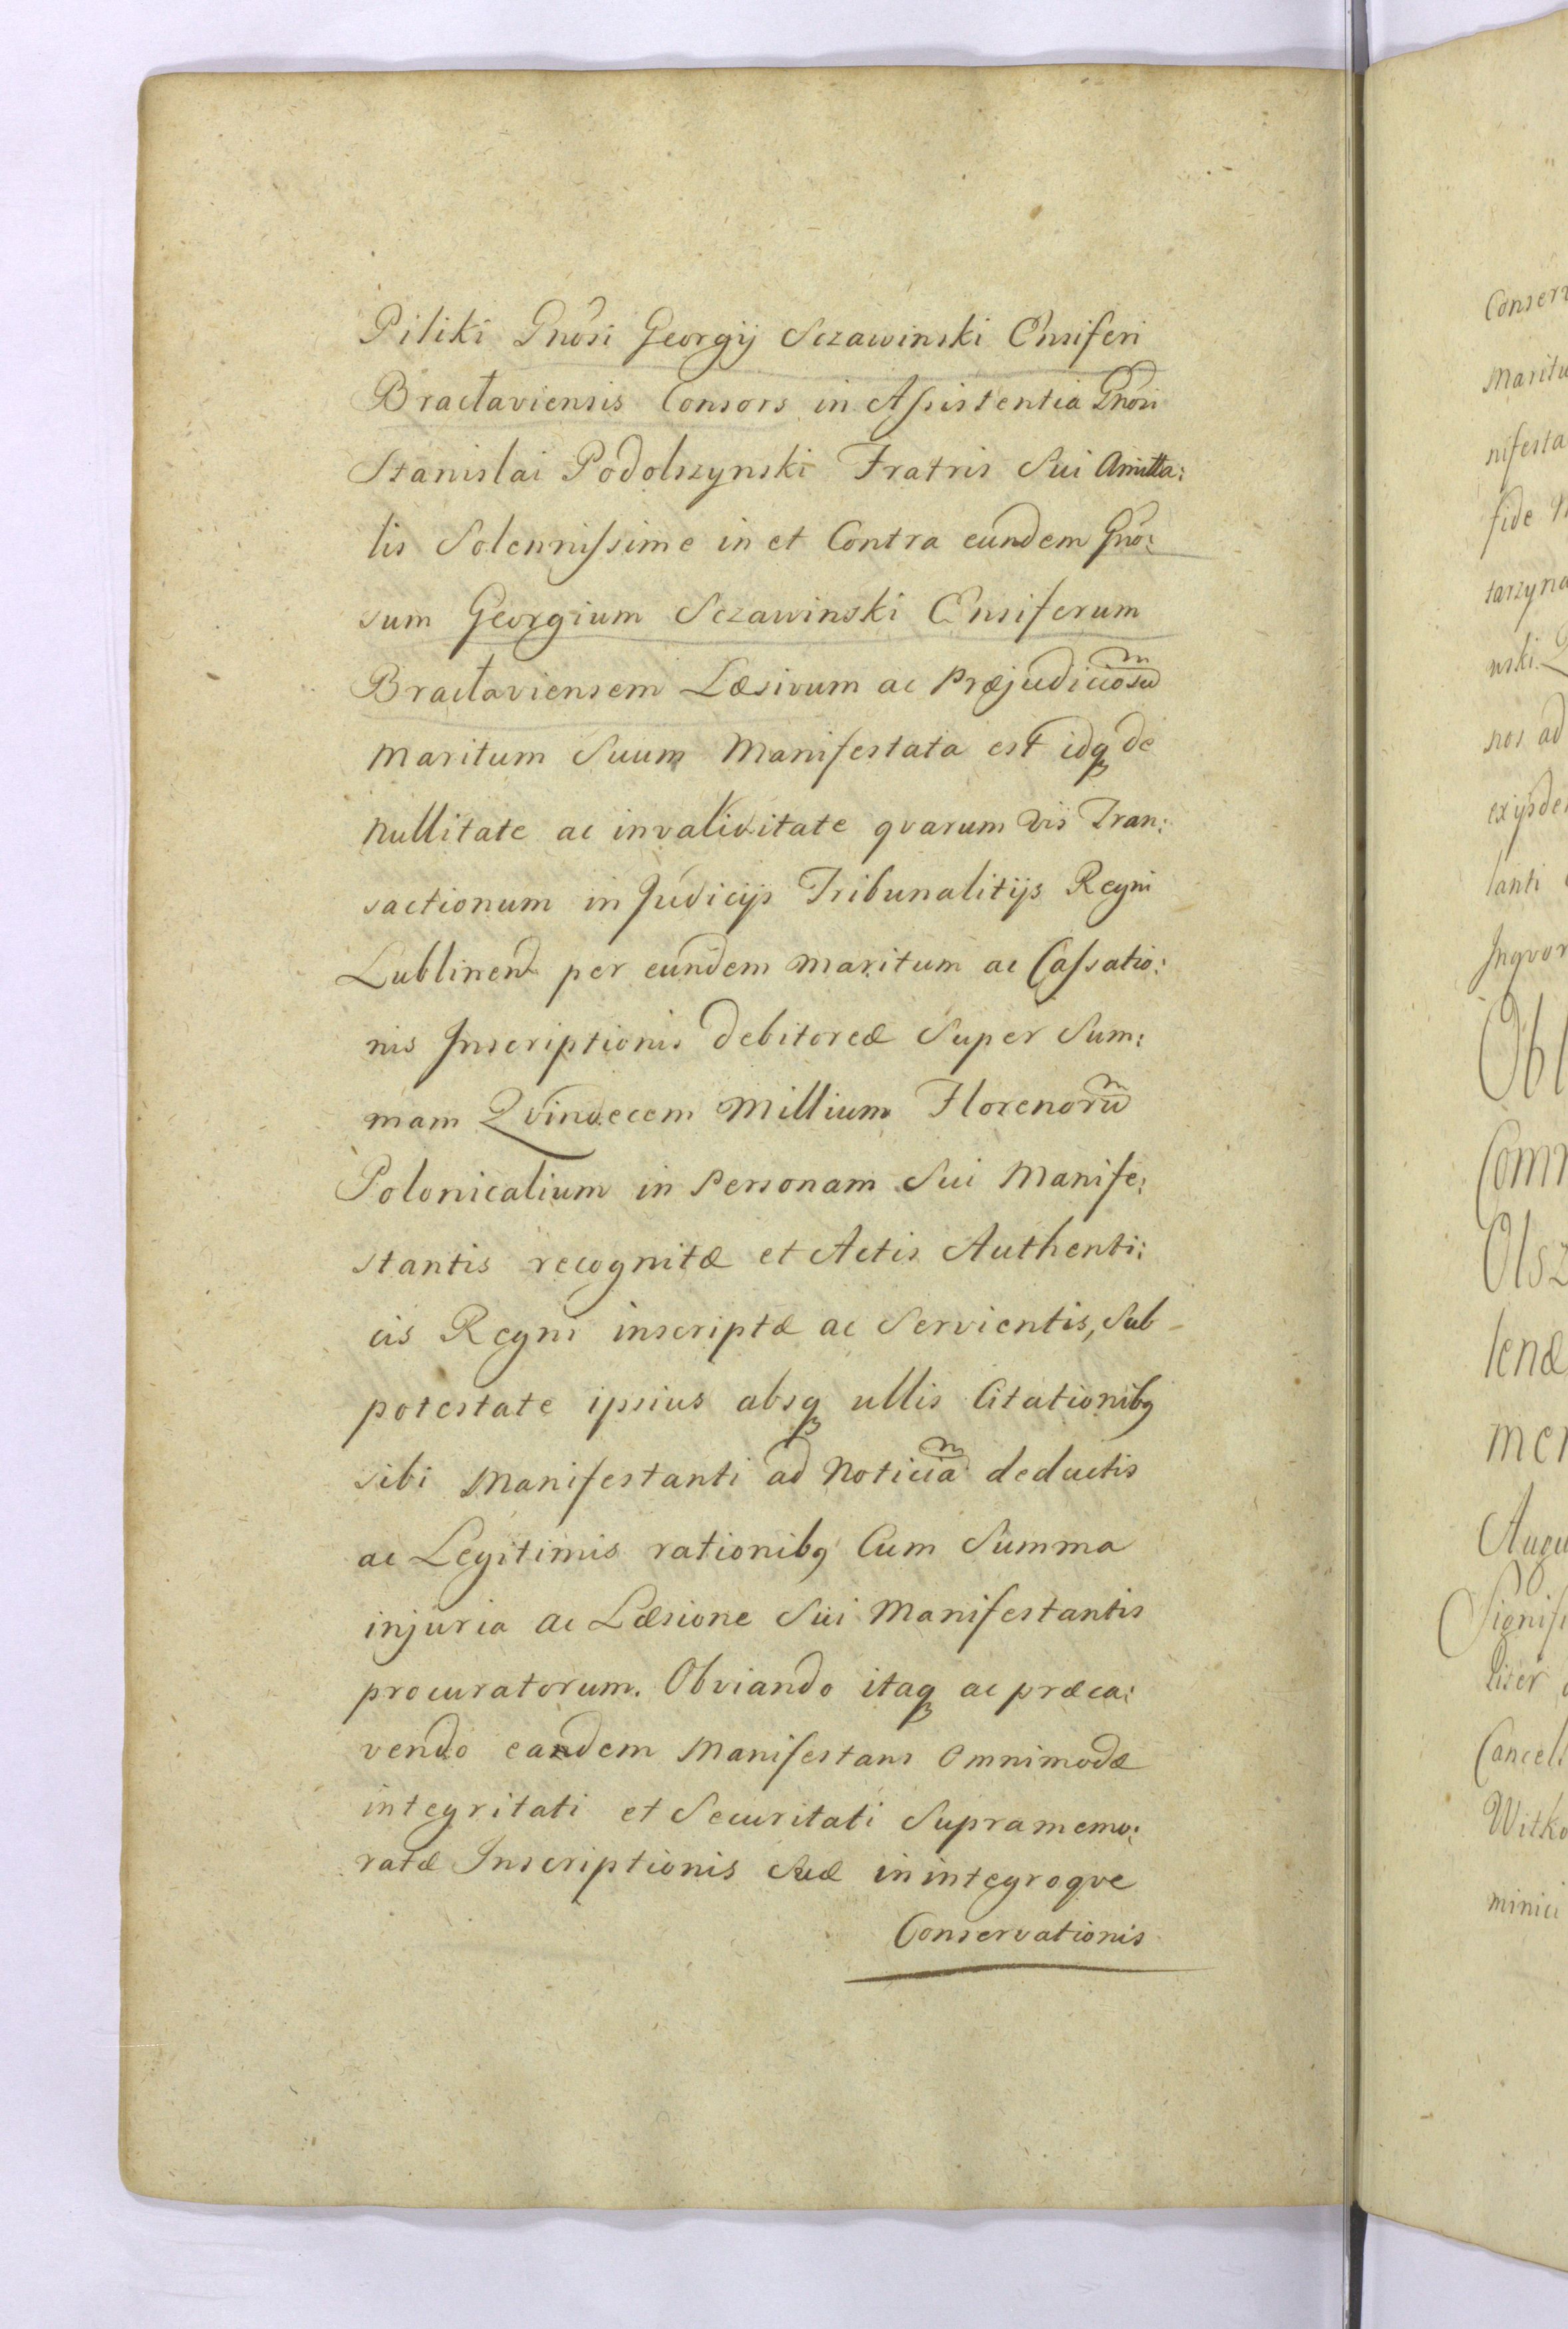 Piliki Gnosi Georgij Sczawinski Ensiferi
Bractaviensis Consors in Assistentia Gnosi
Stanislai Podolszynski Fratris Sui Amitta:
lis Solennissime in et Contra eundem Gno:
sum Georgium Sczawinski Ensiferum
Bractaviensem Læsivum ac Præjudiciosum
Maritum Suum Manifestata est idq de
Nullitate ac invaliditate qvarum vis Tran:
sactionum in Judicijs Tribunalitijs Regni
Lublinen per eundem Maritum ac Cassatio:
nis Inscriptionis debitoreæ Super Sum:
mam Qvindecem Millium Florenorum
Polonicalium in Personam Sui Manife:
stantis recognitæ et Actis Authenti:
cis Regni inscriptæ ac Servientis, Sub-
potestate ipsius absq ullis Citationibq
sibi Manifestanti ad Noticiam deductis
ac Legitimis rationibq Cum Summa
injuria ac Læsione Sui Manifestantis
procuratorum. Obviando itaq ac præca:
vendo eandem Manifestans Omnimodæ
integritati et Securitati Supramemo:
ratæ Inscriptionis Suæ in integroqve
Conservationis
Conserv
Maritu
nifesta
fide
tarzyna
nski
nos ad
exijsde
lanti
Inqvor
Obl
Com
Olsz
lenæ
mer
Augu
Signifi
liter
Cancel
Witko
minici